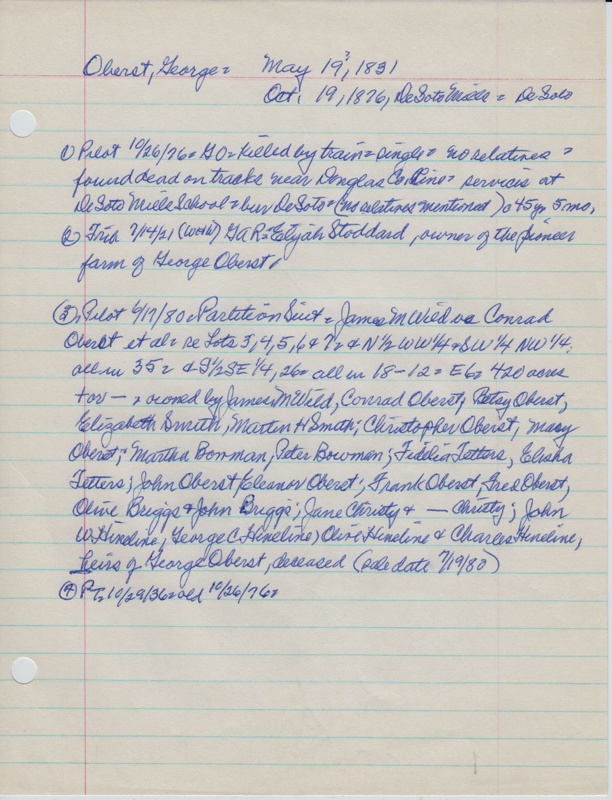 Oberst, George = May 19?, 1831
Oct. 19, 1876, DeSoto Mills = DeSoto
① Pilot 10/26/76 = GO = killed by train = single = no relatives =
found dead on tracks near Douglas Co Line = services at
DeSoto Mills School = bur DeSoto = (no relatives mentioned) a 45 yr 5 mo,
② Trib 7/14/21 (WHW) GaP = Elijah Stoddard, owner of the pioneer
farm of George Oberst,
③ Pilot 6/17/80 = Partition Suit = James M Wild vs Conrad
Oberst et al = re Lots 3, 4, 5, 6 & 7 = & N 1/2 NW 1/4 = SW 1/4 NW 1/4;
all in 35 = & S 1/2 SE 1/4, 26 = all in 18-12 = E6 = 420 acres
for — , owned by James M Wild, Conrad Oberst, Betsy Oberst,
Elizabeth Smith, Martin H Smith; Christopher Oberst, Mary
Oberst; Martha Bowman, Peter Bowman; Fidelia Tetters, Elisha
Tetters; John Oberst Eleanor Oberst; Frank Oberst, Fred Oberst,
Olive Briggs & John Briggs; Jane Christy & — Christy; John
W. Hineline, George C. Hineline, Olive Hineline & Charles Hineline,
Heirs of George Oberst, deceased (sale date 7/19/80)
④ PT 10/29/36 = old 10/26/76 =